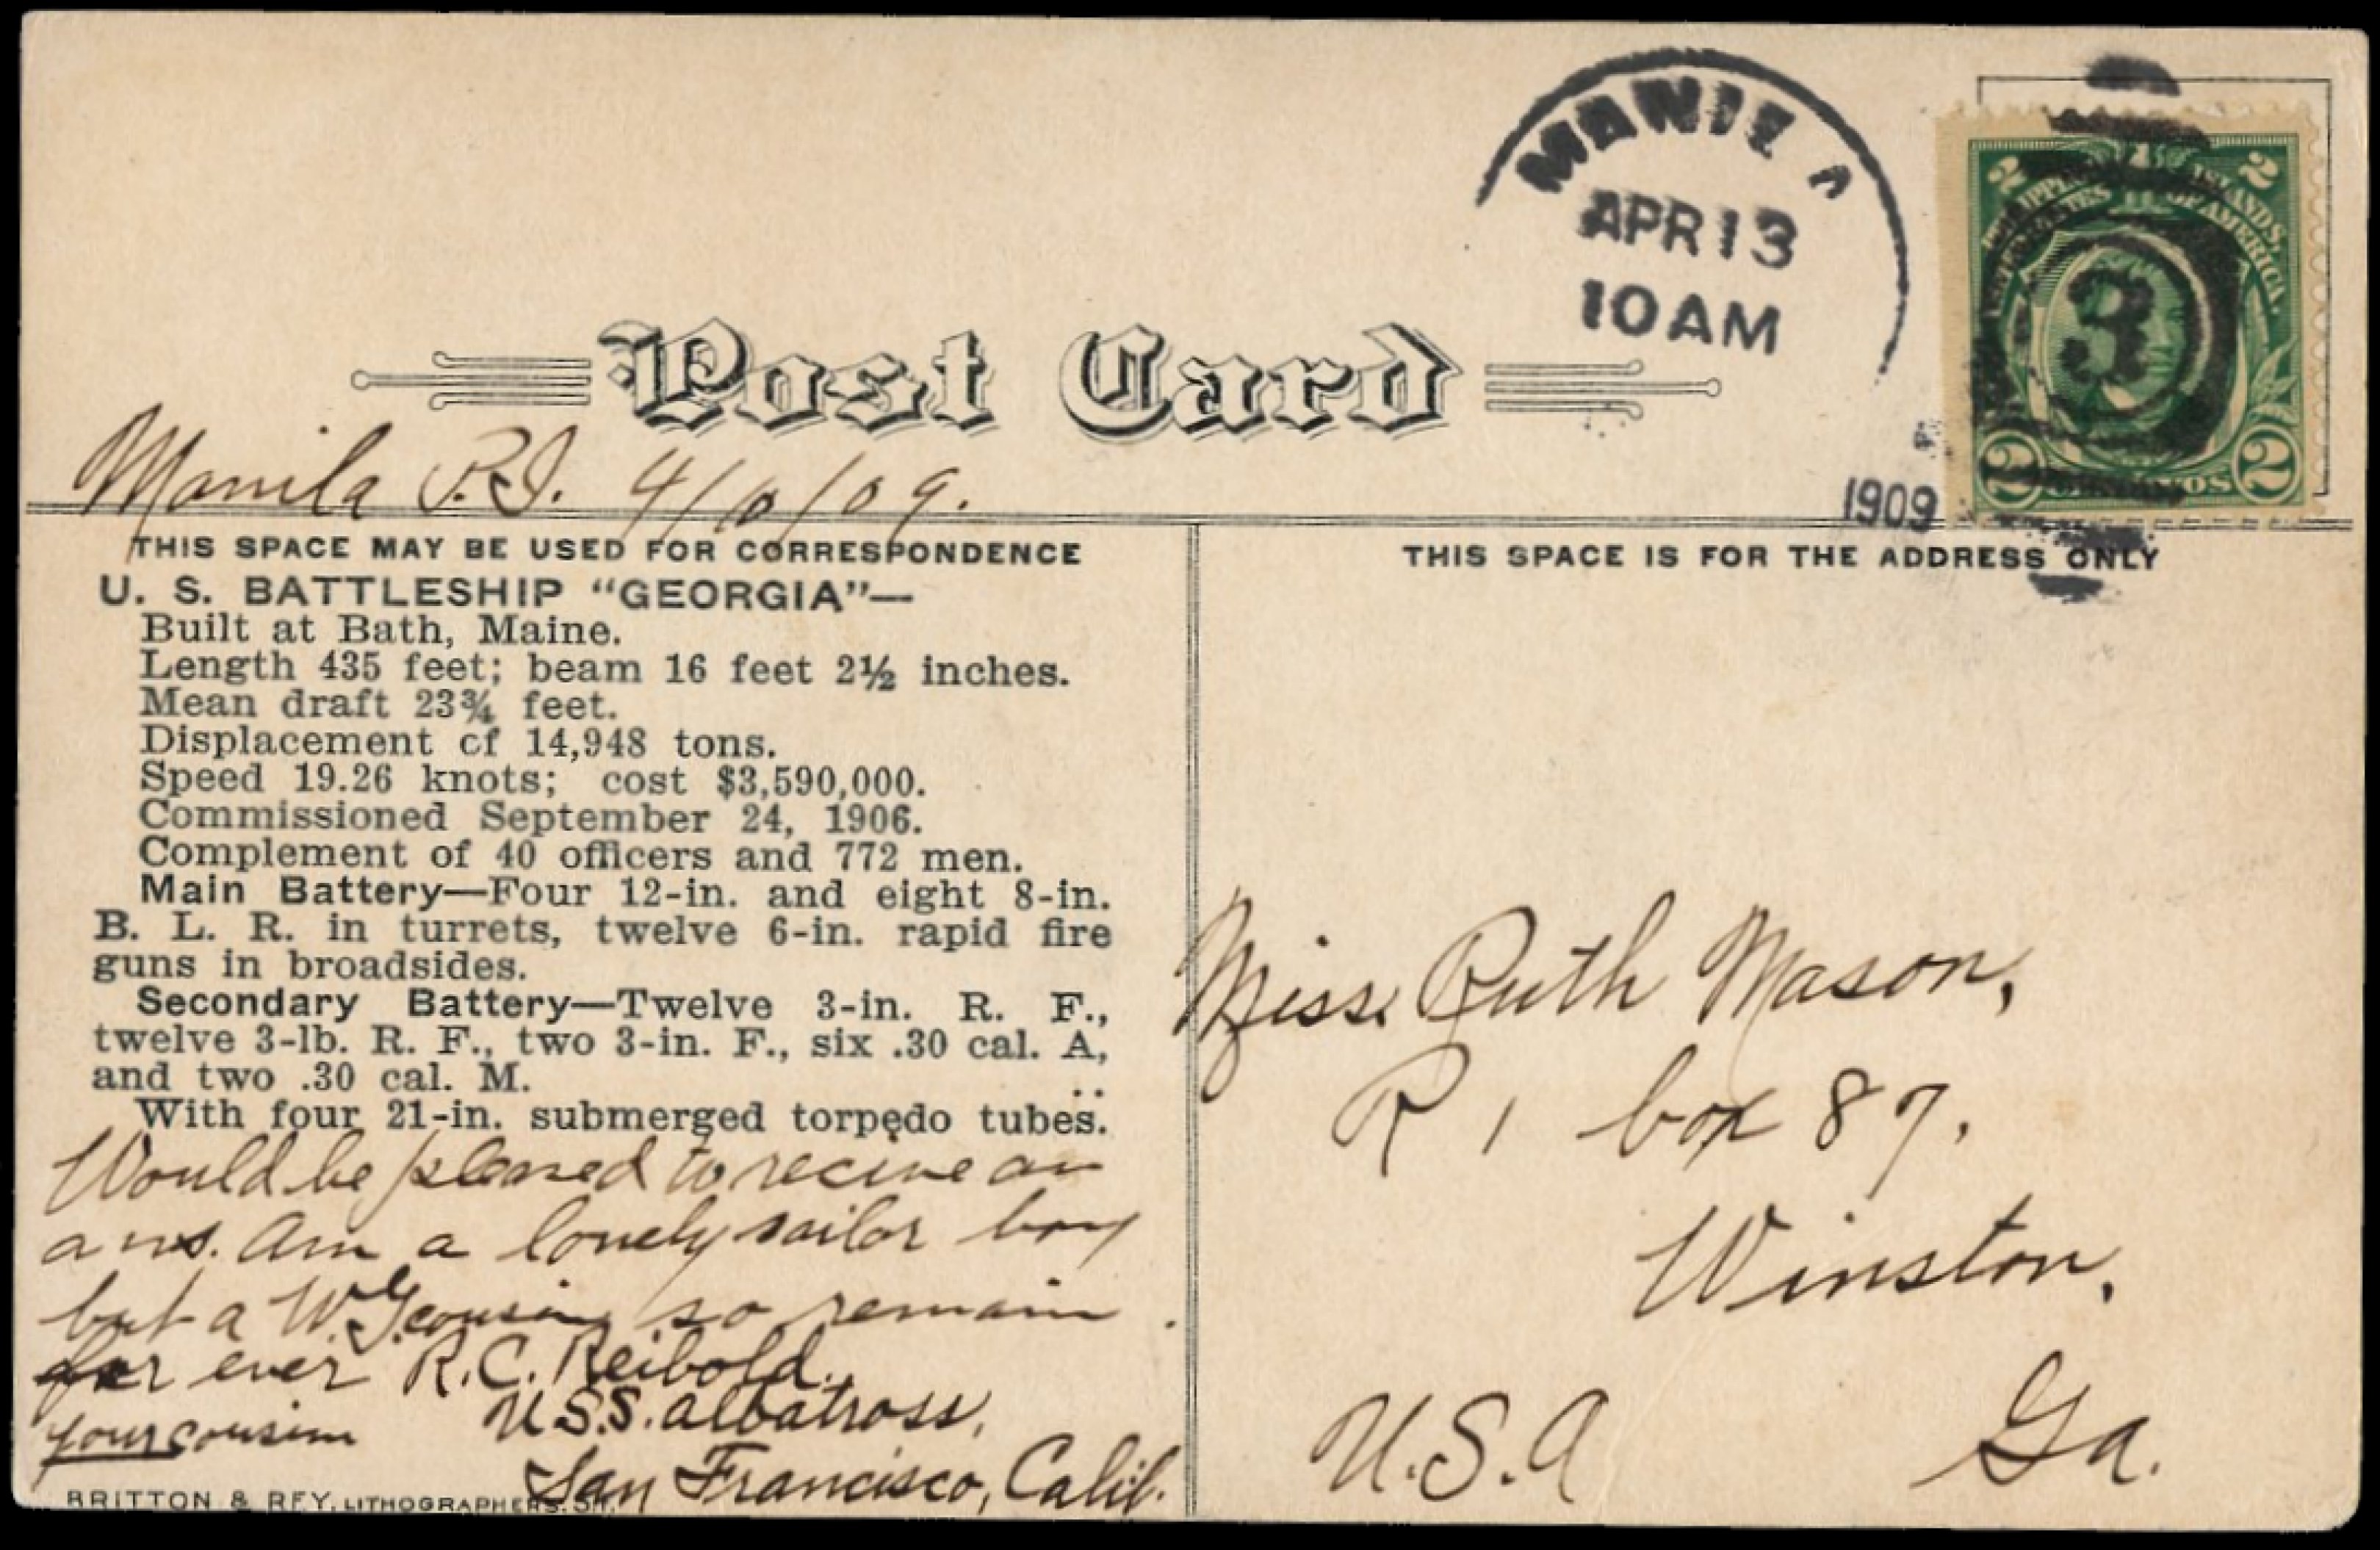 MANILA
APR 13
10 AM
1909
3
2 2
PHILIPPINE ISLANDS.
UNITED STATES OF AMERICA.
2 CENTAVOS 2
Post Card
Manila P.I. 4/10/09.
THIS SPACE MAY BE USED FOR CORRESPONDENCE
U. S. BATTLESHIP “GEORGIA”—
Built at Bath, Maine.
Length 435 feet; beam 16 feet 2½ inches.
Mean draft 23¾ feet.
Displacement of 14,948 tons.
Speed 19.26 knots; cost $3,590,000.
Commissioned September 24, 1906.
Complement of 40 officers and 772 men.
Main Battery—Four 12-in. and eight 8-in.
B. L. R. in turrets, twelve 6-in. rapid fire
guns in broadsides.
Secondary Battery—Twelve 3-in. R. F.,
twelve 3-lb. R. F., two 3-in. F., six .30 cal. A,
and two .30 cal. M.
With four 21-in. submerged torpedo tubes.
Would be pleased to receive an
ans. Am a lonely sailor boy
but a W. G. cousin so remain
for ever R.C. Reibold.
your cousin U.S.S. Albatross,
San Francisco, Calif.
BRITTON & REY, LITHOGRAPHERS. S.F.
THIS SPACE IS FOR THE ADDRESS ONLY
Miss Ruth Mason,
R 1 box 87.
Winston,
Ga.
U.S.A